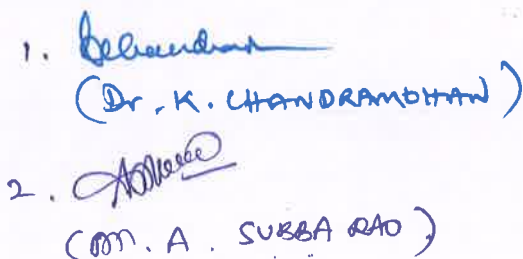 1.
(Dr. K. CHANDRAMOHAN)
2.
(M. A. SUBBA RAO)